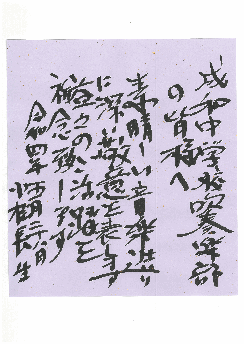 成和中学校吹奏楽部
の皆様へ
素晴しい音楽造り
に深い敬意を表します
益々のご活躍を
祈念致します
令四年 三月